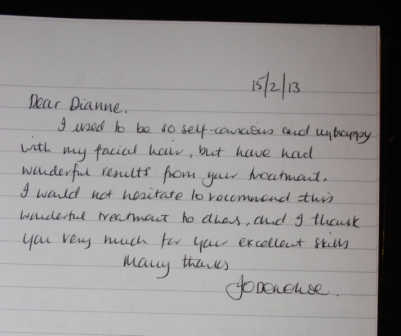 15/2/13
Dear Dianne,
I used to be so self-conscious and unhappy
with my facial hair, but have had
wonderful results from your treatment.
I would not hesitate to recommend this
wonderful treatment to others, and I thank
you very much for your excellent skills
Many thanks